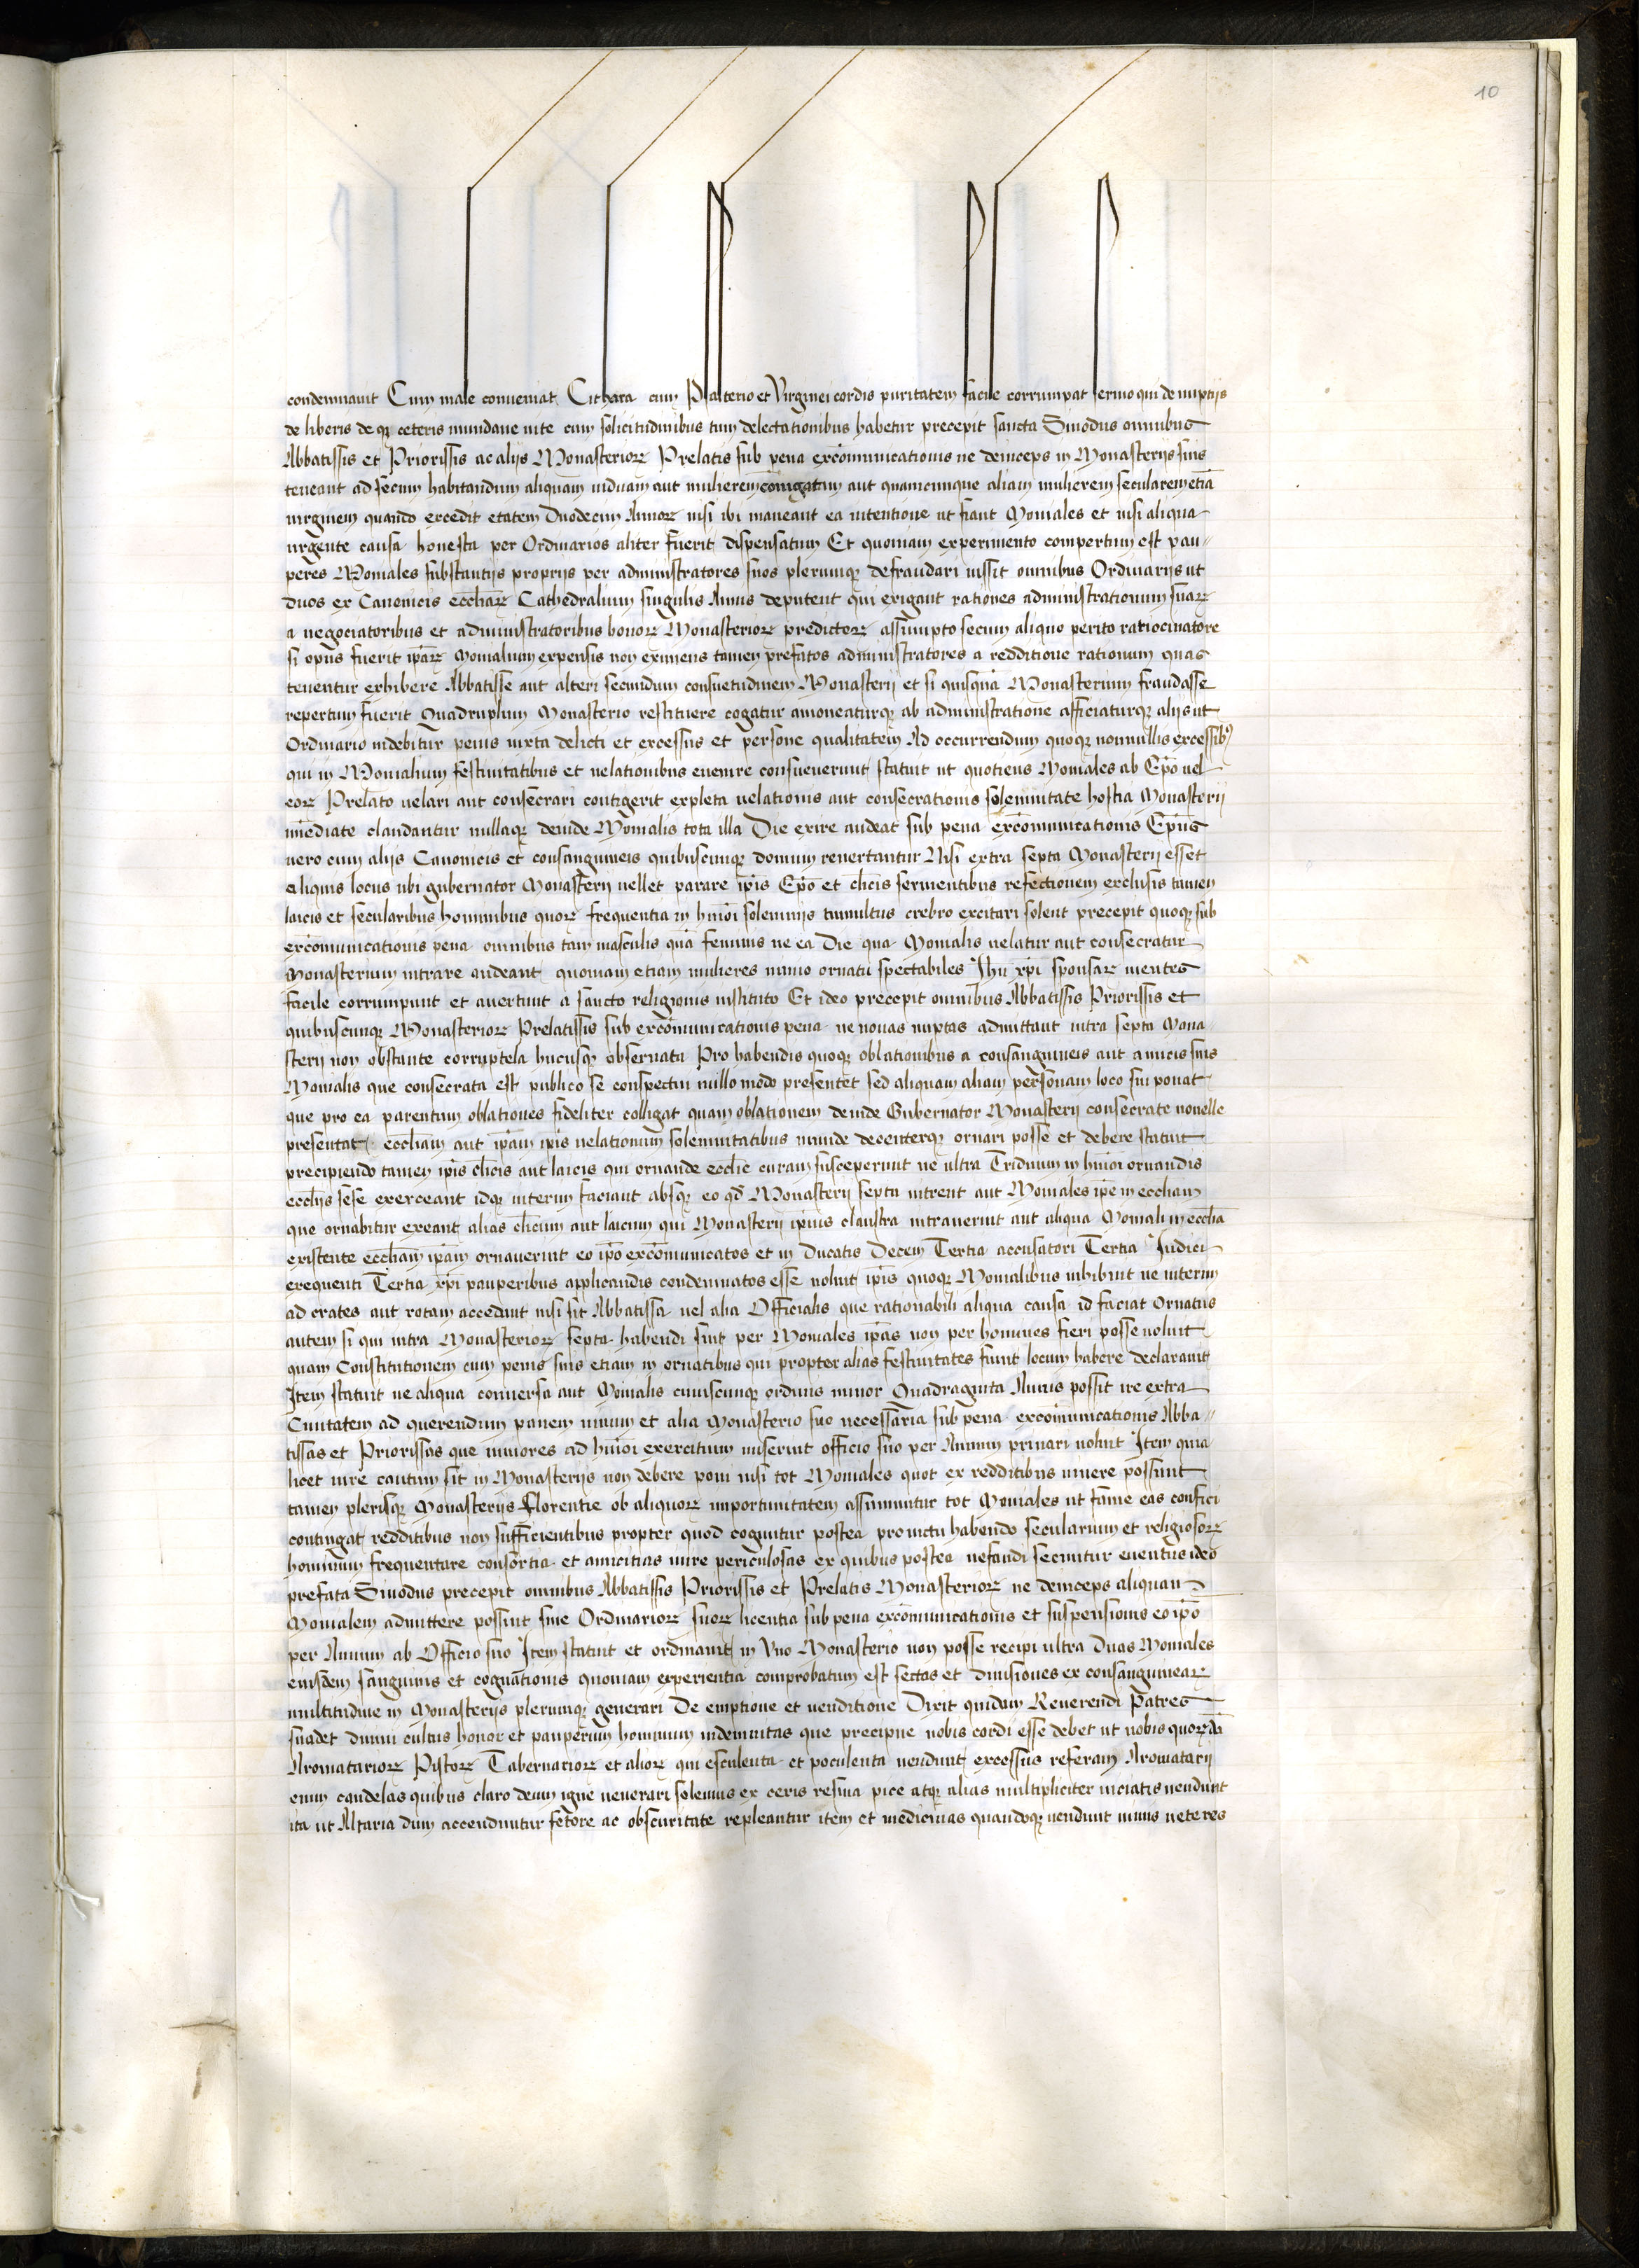 10
condemnauit Cum male conueniat Cithara cum Psalterio et Virginei cordis puritatem facile corrumpat sermo qui de nuptijs
de liberis de qꝫ ceteris mundane uite cum solicitudinibus tum delectationibus habetur precepit sancta Sinodus omnibus
Abbatissis et Priorissis ac alijs Monasterioꝝ Prelatis sub pena excōmunicationis ne deinceps in Monasterijs suis
teneant ad secum habitandum aliquam uiduam aut mulierem coniugatam aut quamcunque aliam mulierem secularem etiā
uirginem quando excedit etatem Duodecim Annoꝝ nisi ibi maneant ea intentione ut fiant Moniales et nisi aliqua
urgente causa honesta per Ordinarios aliter fuerit dispensatum Et quoniam experimento compertum est pau-
peres Moniales substantijs proprijs per administratores suos plerunqꝫ defraudari iussit omnibus Ordinarijs ut
duos ex Canonicis eccliaꝝ Cathedralium singulis Annis deputent qui exigant rationes administrationum suaꝝ
a negociatoribus et administratoribus bonoꝝ Monasterioꝝ predictoꝝ assumpto secum aliquo perito ratiocinatore
si opus fuerit ip̄aꝝ Monialium expensis non eximens tamen prefatos administratores a redditione rationum quas
tenentur exhibere Abbatisse aut alteri secundum consuetudinem Monasterij et si quisquā Monasterium fraudasse
repertum fuerit Quadruplum Monasterio restituere cogatur amoneaturqꝫ ab administratione afficiaturqꝫ alijs ut
Ordinario uidebitur penis iuxta delicti et excessus et persone qualitatem Ad occurrendum quoqꝫ nonnullis excessibꝰ
qui in Monialium festiuitatibus et uelationibus euenire consueuerunt statuit ut quotiens Moniales ab Ep̄o uel
eoꝝ Prelato uelari aut consecrari contigerit expleta uelationis aut consecrationis solemnitate hostia Monasterij
īmediate claudantur nullaqꝫ deinde Monialis tota illa Die exire audeat sub pena excōmunicationis Ep̄us
uero cum alijs Canonicis et consanguineis quibuscunqꝫ domum reuertantur Nisi extra septa Monasterij esset
aliquis locus ubi gubernator Monasterij uellet parare ip̄is Ep̄o et cl̄icis seruientibus refectionem exclusis tamen
laicis et secularibus hominibus quoꝝ frequentia in hm̄oi solemnijs tumultus crebro excitari solent precepit quoqꝫ sub
excōmunicationis pena omnibus tam masculis quā feminis ne ea Die qua Monialis uelatur aut consecratur
Monasterium intrare audeant quoniam etiam mulieres nimio ornatu spectabiles Ihū xp̄i sponsaꝝ mentes
facile corrumpunt et auertunt a sancto religionis instituto Et ideo precepit omnibus Abbatissis Priorissis et
quibuscunqꝫ Monasterioꝝ Prelatissis sub excōmunicationis pena ne nouas nuptas admittant intra septa Mona-
sterij non obstante corruptela hucusqꝫ obseruata Pro habendis quoqꝫ oblationibus a consanguineis aut amicis suis
Monialis que consecrata est publico se conspectui nullo modo presentet sed aliquam aliam personam loco sui ponat
que pro ea parentum oblationes fideliter colligat quam oblationem deinde Gubernator Monasterij consecrate nouelle
presentat eccliam aut ip̄am ip̄is uelationum solemnitatibus munde decenterqꝫ ornari posse et debere statuit
precipiendo tamen ip̄is cl̄icis aut laicis qui ornande ecclie curam susceperunt ne ultra Triduum in hm̄oi ornandis
ecclijs sese exerceant idqꝫ interim faciant absqꝫ eo qd̄ Monasterij septa intrent aut Moniales ip̄e in eccliam
que ornabitur exeant alias cl̄icum aut laicum qui Monasterij ip̄ius claustra intrauerint aut aliqua Moniali in ecclia
existente eccliam ip̄am ornauerint eo ip̄o excōmunicatos et in Ducatis Decem Tertia accusatori Tertia Iudici
exequenti Tertia xp̄i pauperibus applicandis condemnatos esse uoluit ip̄is quoqꝫ Monialibus inhibuit ne interim
ad crates aut rotam accedant nisi sit Abbatissa uel alia Officialis que rationabili aliqua causa id faciat Ornatus
autem si qui intra Monasterioꝝ septa habendi sint per Moniales ip̄as non per homines fieri posse uoluit
quam Constitutionem cum penis suis etiam in ornatibus qui propter alias festiuitates fiunt locum habere declarauit
Item statuit ne aliqua conuersa aut Monialis cuiuscunqꝫ ordinis minor Quadraginta Annis possit ire extra
Ciuitatem ad querendum panem uinum et alia Monasterio suo necessaria sub pena excōmunicationis Abba-
tissas et Priorissas que iuniores ad hm̄oi exercitium miserint officio suo per Annum priuari uoluit Item quia
licet iure cautum sit in Monasterijs non debere poni nisi tot Moniales quot ex redditibus uiuere possunt
tamen plerisqꝫ Monasterijs Florentie ob aliquoꝝ importunitatem assumuntur tot Moniales ut fame eas confici
contingat redditibus non sufficientibus propter quod coguntur postea pro uictu habendo secularium et religiosoꝝ
hominum frequentare consortia et amicitias mire periculosas ex quibus postea nefandi secuntur euentus ideo
prefata Sinodus precepit omnibus Abbatissis Priorissis et Prelatis Monasterioꝝ ne deinceps aliquam
Monialem admittere possint sine Ordinarioꝝ suoꝝ licentia sub pena excōmunicationis et suspensionis eo ip̄o
per Annum ab Officio suo Item statuit et ordinauit in Vno Monasterio non posse recipi ultra Duas Moniales
eiusdem sanguinis et cognationis quoniam experientia comprobatum est sectas et diuisiones ex consanguineaꝝ
multitudine in Monasterijs plerunqꝫ generari De emptione et uenditione Dixit quidam Reuerendi Patres
suadet diuini cultus honor et pauperum hominum indemnitas que precipue nobis cordi esse debet ut uobis quoꝝdā
Aromatarioꝝ Pistoꝝ Tabernarioꝝ et alioꝝ qui esculenta et poculenta uendunt excessus referam Aromatarij
enim candelas quibus claro deum igne uenerari solemus ex ceris resina pice atqꝫ alias multipliciter uiciatis uendunt
ita ut Altaria dum accenduntur fetore ac obscuritate repleantur item et medicinas quandoqꝫ uendunt nimis ueteres